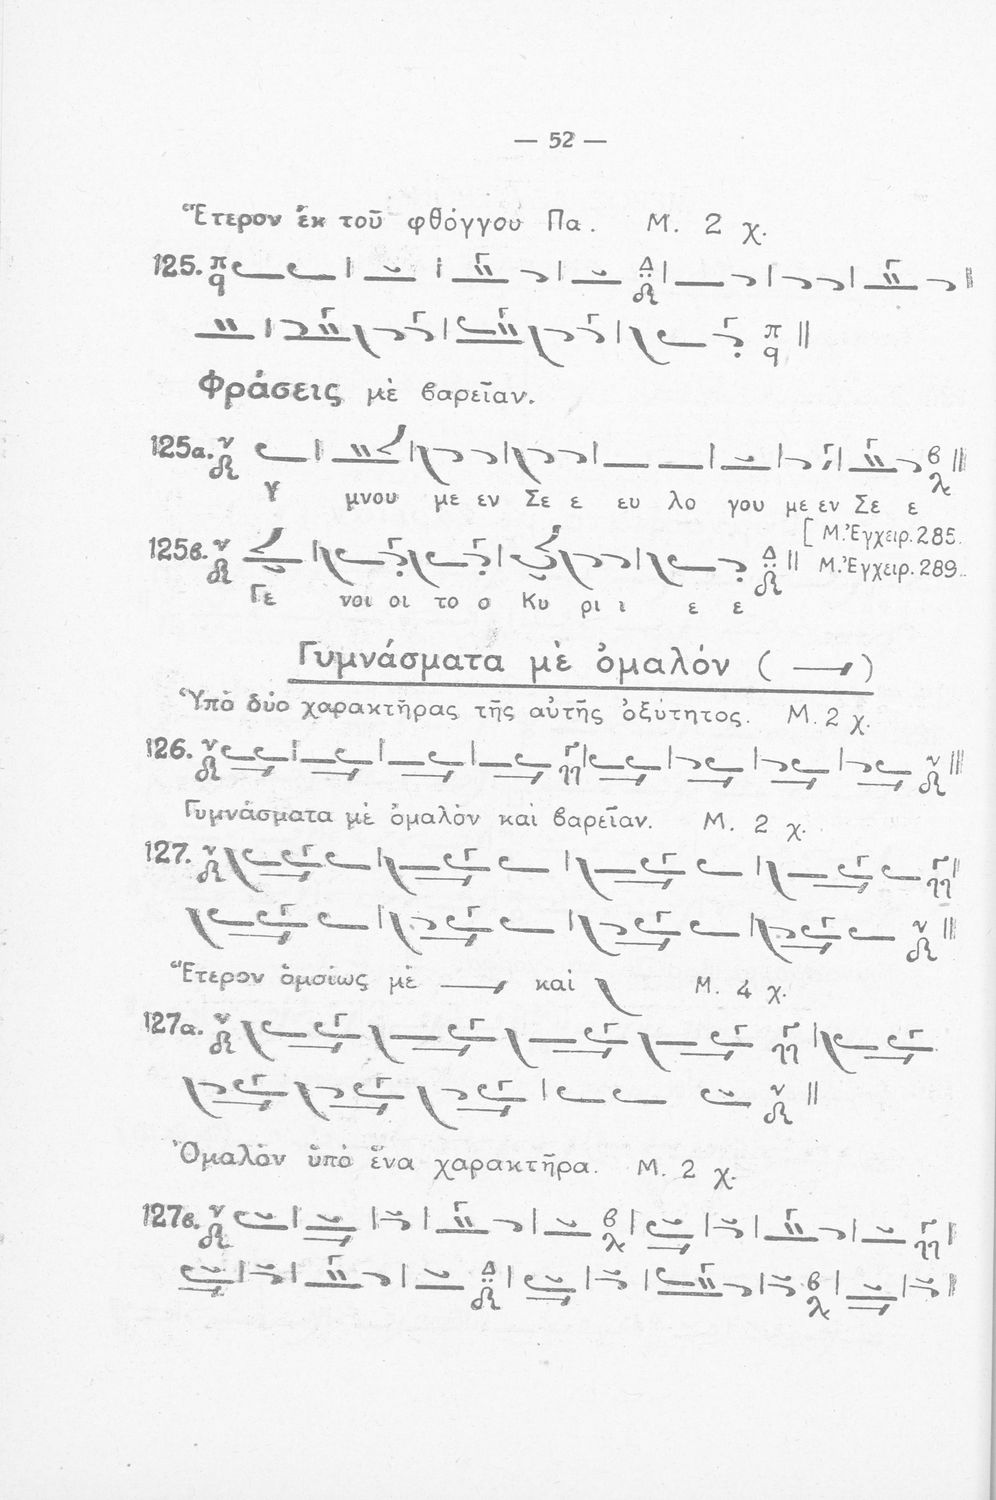 — 52 —
Ἕτερον ἐκ τοῦ φθόγγου Πα. Μ. 2 χ.
125.
Φράσεις μὲ βαρεῖαν.
125α.
Υ μνου με εν Σε ε ευ λο γου με εν Σε ε
[Μ. Ἐγχειρ. 285.
125β. Μ. Ἐγχειρ. 289.
Γε νοι οι το ο Κυ ρι ι ε ε
Γυμνάσματα μὲ ὁμαλόν ( )
Ὑπὸ δύο χαρακτῆρας τῆς αὐτῆς ὀξύτητος. Μ. 2 χ.
126.
Γυμνάσματα μὲ ὁμαλόν καὶ βαρεῖαν. Μ. 2 χ.
127.
Ἕτερον ὁμοίως μὲ καὶ Μ. 4 χ.
127α.
Ὁμαλὸν ὑπὸ ἕνα χαρακτῆρα. Μ. 2 χ.
127β.